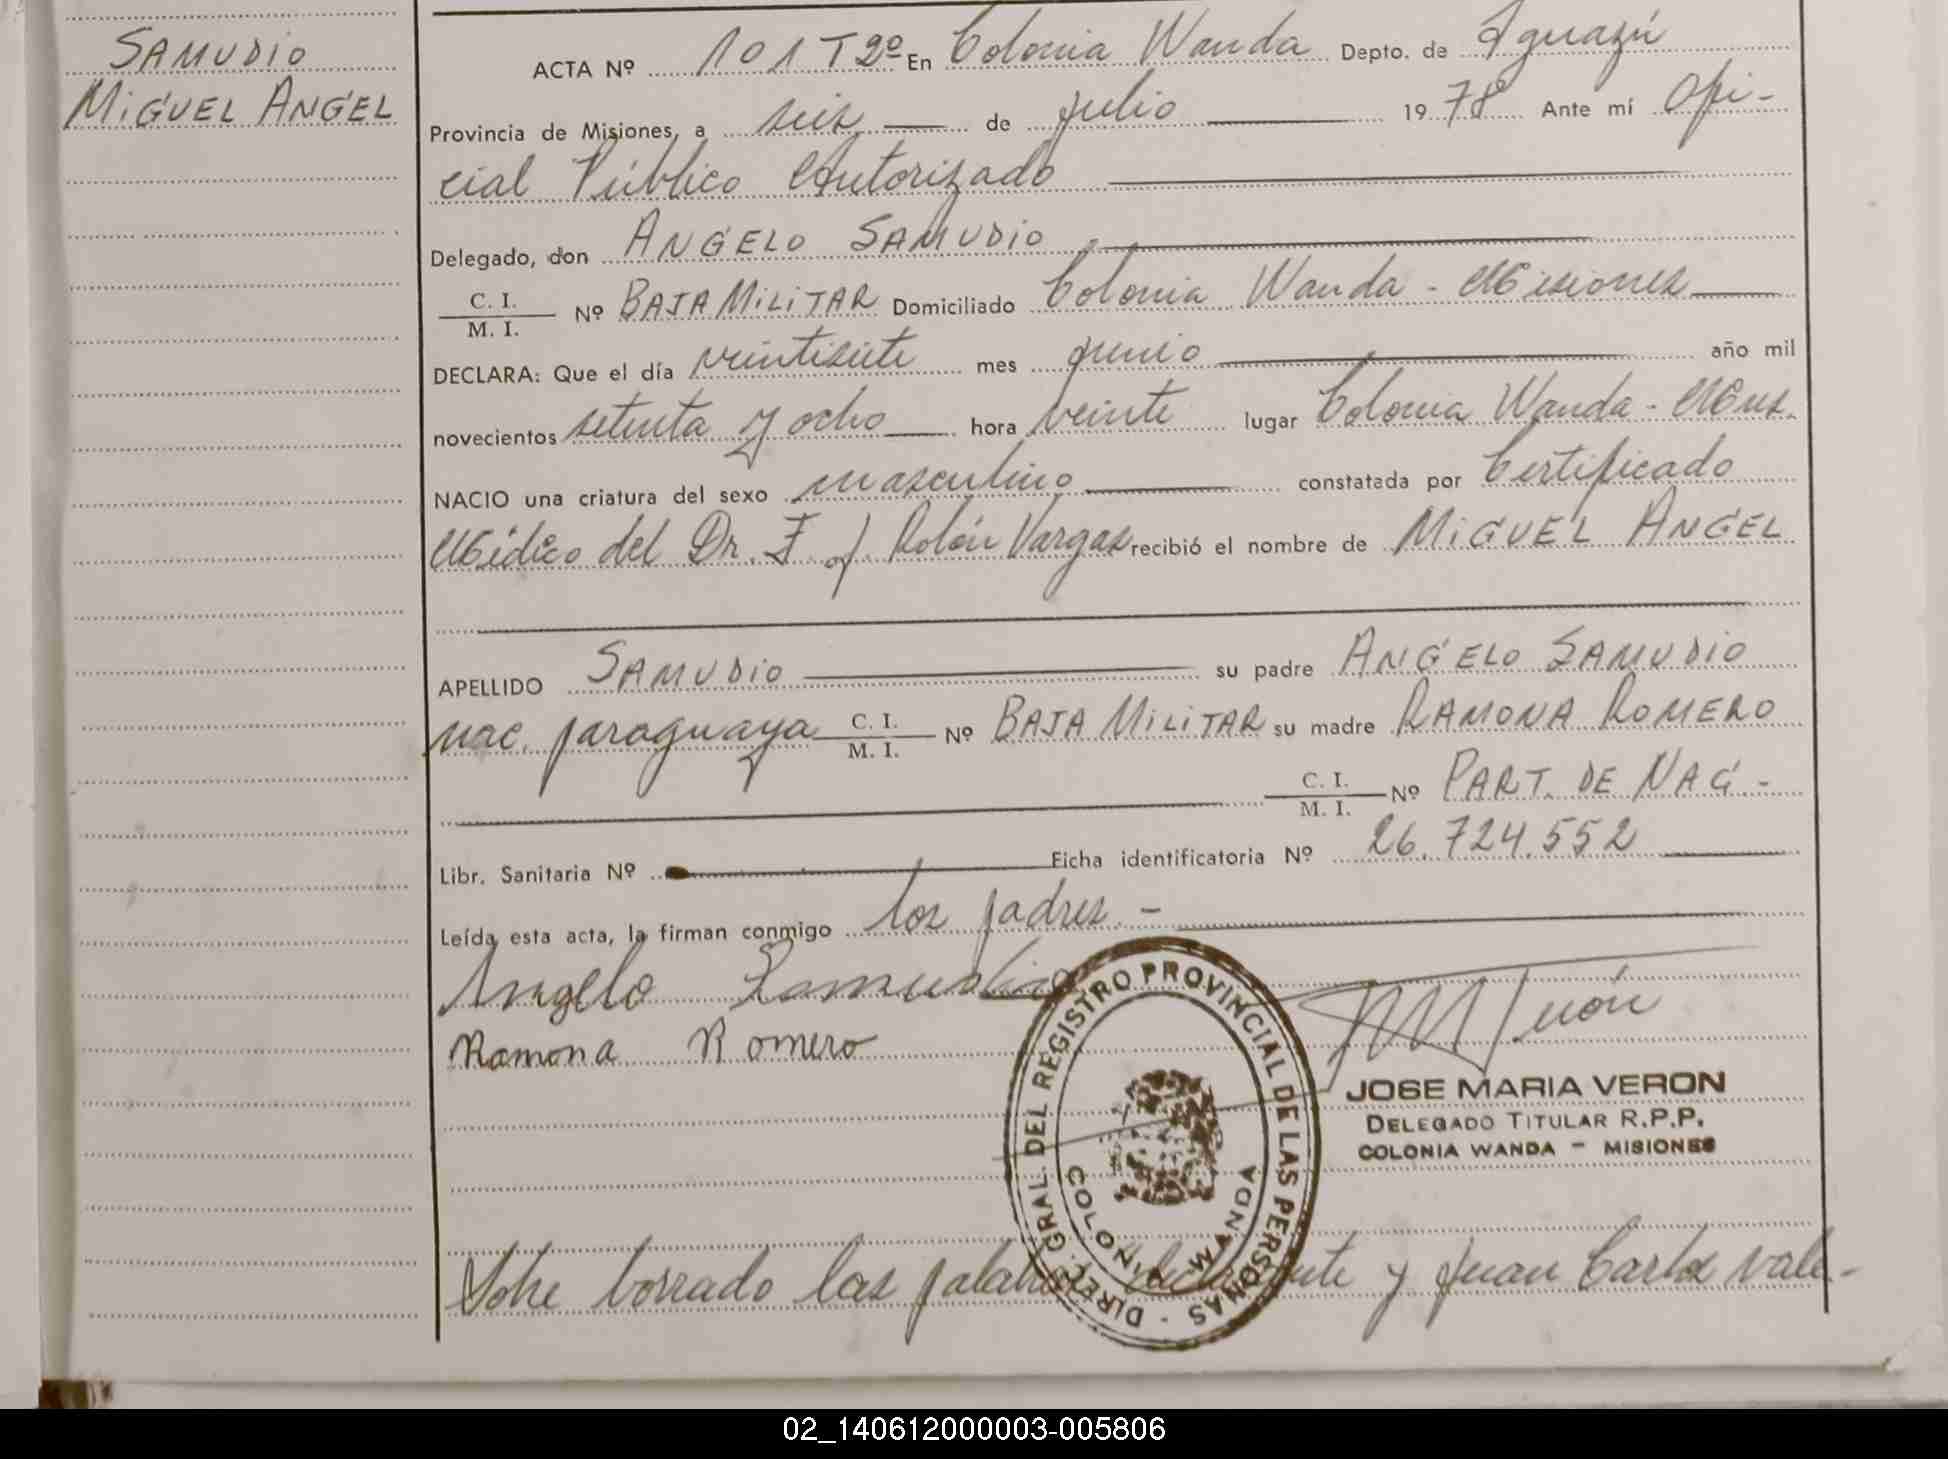 SAMUDIO
MIGUEL ANGEL
ACTA Nº 101 T 2º En Colonia Wanda Depto. de Iguazú
Provincia de Misiones, a seis de julio 1978 Ante mí Ofi-
cial Público Autorizado
Delegado, don ANGELO SAMUDIO
C. I.
M. I. Nº BAJA MILITAR Domiciliado Colonia Wanda - Misiones
DECLARA: Que el día veintisiete mes junio año mil
novecientos setenta y ocho hora veinte lugar Colonia Wanda - Mns.
NACIO una criatura del sexo masculino constatada por Certificado
Médico del Dr. F. J. Rolón Vargas recibió el nombre de MIGUEL ANGEL
APELLIDO SAMUDIO su padre ANGELO SAMUDIO
nac. paraguaya C. I.
M. I. Nº BAJA MILITAR su madre RAMONA ROMERO
C. I.
M. I. Nº PART. DE NAC -
Libr. Sanitaria Nº Ficha identificatoria Nº 26.724.552
Leída esta acta, la firman conmigo los padres. -
Angelo Samudio
Ramona Romero
DIREC. GRAL. DEL REGISTRO PROVINCIAL DE LAS PERSONAS -
COLONIA WANDA
JOSE MARIA VERON
DELEGADO TITULAR R.P.P.
COLONIA WANDA - MISIONES
Sobre borrado las palabras y Juan Carlos vale-
02_140612000003-005806